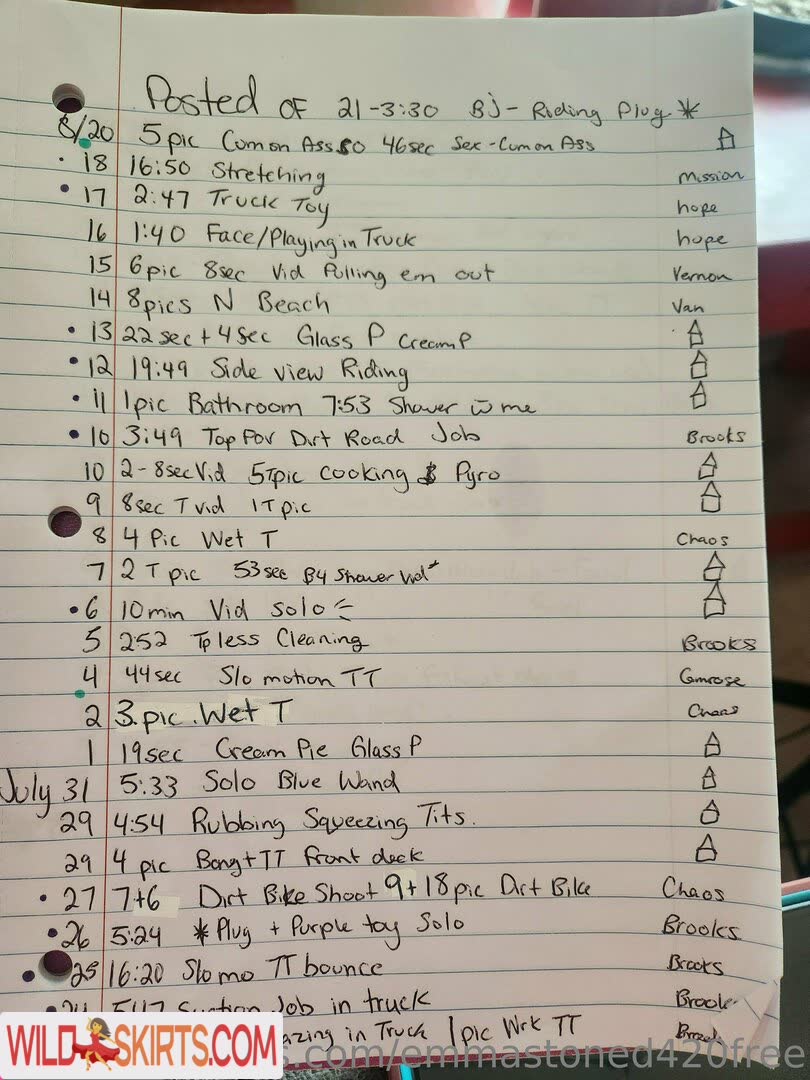 Posted OF 21-3:30 BJ - Riding Plug *
8/20 5pic Cum on Ass 50 46sec Sex - Cum on Ass
18 16:50 Stretching Mission
17 2:47 Truck Toy hope
16 1:40 Face/Playing in Truck hope
15 6pic 8sec Vid Pulling em out Vernon
14 8pics N Beach Van
13 22sec + 4sec Glass P CreamP
12 19:49 Side view Riding
11 1pic Bathroom 7:53 Shower w̄ me
10 3:49 Top Pov Dirt Road Job Brooks
10 2-8sec Vid 5Tpic Cooking & Pyro
9 8sec T vid 1T pic
8 4 Pic Wet T Chaos
7 2 T pic 53sec B4 Shower Vid*
6 10min Vid Solo
5 2:52 Tpless Cleaning Brooks
4 44sec Slo motion TT Camrose
2 3.pic .Wet T Chaos
1 19sec Cream Pie Glass P
July 31 5:33 Solo Blue Wand
29 4:54 Rubbing Squeezing Tits.
29 4 pic Bong + TT front deck
27 7+6 Dirt Bike Shoot 9+18pic Dirt Bike Chaos
26 5:24 * Plug + Purple toy Solo Brooks
25 16:20 Slo mo TT bounce Brooks
24 5:47 Suction Job in truck
azing in Truck 1pic Wrk TT
WILDSKIRTS.COM
s.com/emmastoned420free